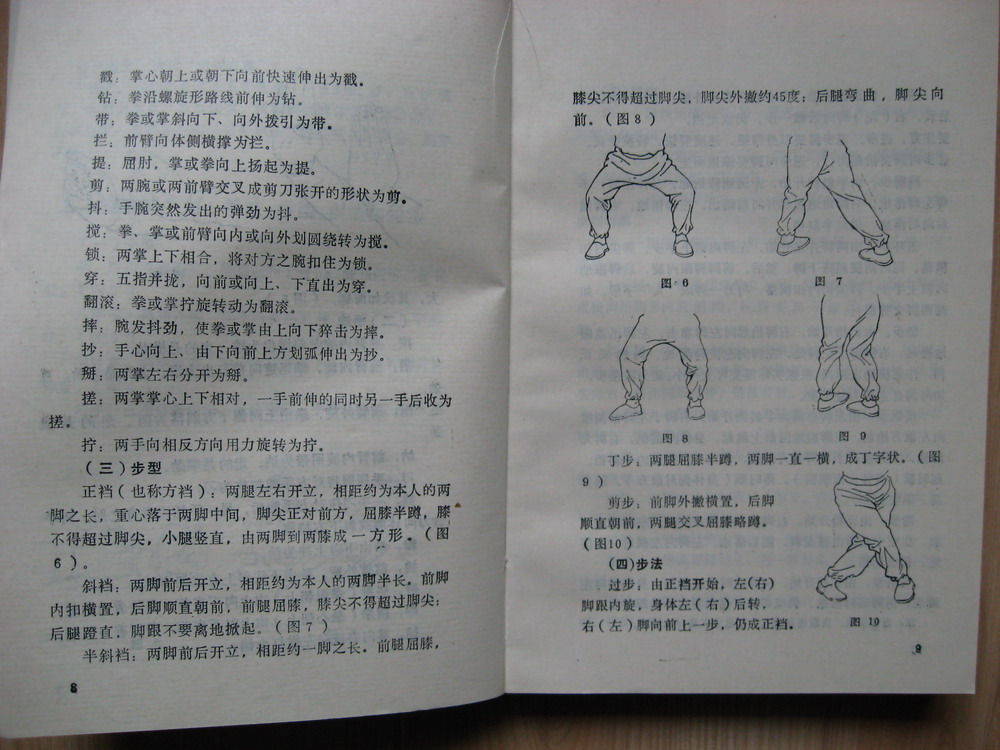 戳：掌心朝上或朝下向前快速伸出为戳。
钻：拳沿螺旋形路线前伸为钻。
带：拳或掌斜向下、向外拨引为带。
拦：前臂向体侧横撑为拦。
提：屈肘，掌或拳向上扬起为提。
剪：两腕或两前臂交叉成剪刀张开的形状为剪。
抖：手腕突然发出的弹劲为抖。
搅：拳、掌或前臂向内或向外划圆绕转为搅。
锁：两掌上下相合，将对方之腕扣住为锁。
穿：五指并拢，向前或向上、下直出为穿。
翻滚：拳或掌拧旋转动为翻滚。
摔：腕发抖劲，使拳或掌由上向下猝击为摔。
抄：手心向上、由下向前上方划弧伸出为抄。
掰：两掌左右分开为掰。
搓：两掌掌心上下相对，一手前伸的同时另一手后收为
搓。
拧：两手向相反方向用力旋转为拧。
（三）步型
正裆（也称方裆）：两腿左右开立，相距约为本人的两
脚之长，重心落于两脚中间，脚尖正对前方，屈膝半蹲，膝
不得超过脚尖，小腿竖直，由两脚到两膝成一方形。（图
6）。
斜裆：两脚前后开立，相距约为本人的两脚半长。前脚
内扣横置，后脚顺直朝前，前腿屈膝，膝尖不得超过脚尖；
后腿蹬直，脚跟不要离地掀起。（图7）
半斜裆：两脚前后开立，相距约一脚之长。前腿屈膝，
8
膝尖不得超过脚尖，脚尖外撇约45度；后腿弯曲，脚尖向
前。（图8）
图·6
图 7
图 8
图 9
丁步：两腿屈膝半蹲，两脚一直一横，成丁字状。（图
9）
剪步：前脚外撇横置，后脚
顺直朝前，两腿交叉屈膝略蹲。
（图10）
（四）步法
过步：由正裆开始，左（右）
脚跟内旋，身体左（右）后转，
右（左）脚向前上一步，仍成正裆。
图 10
9